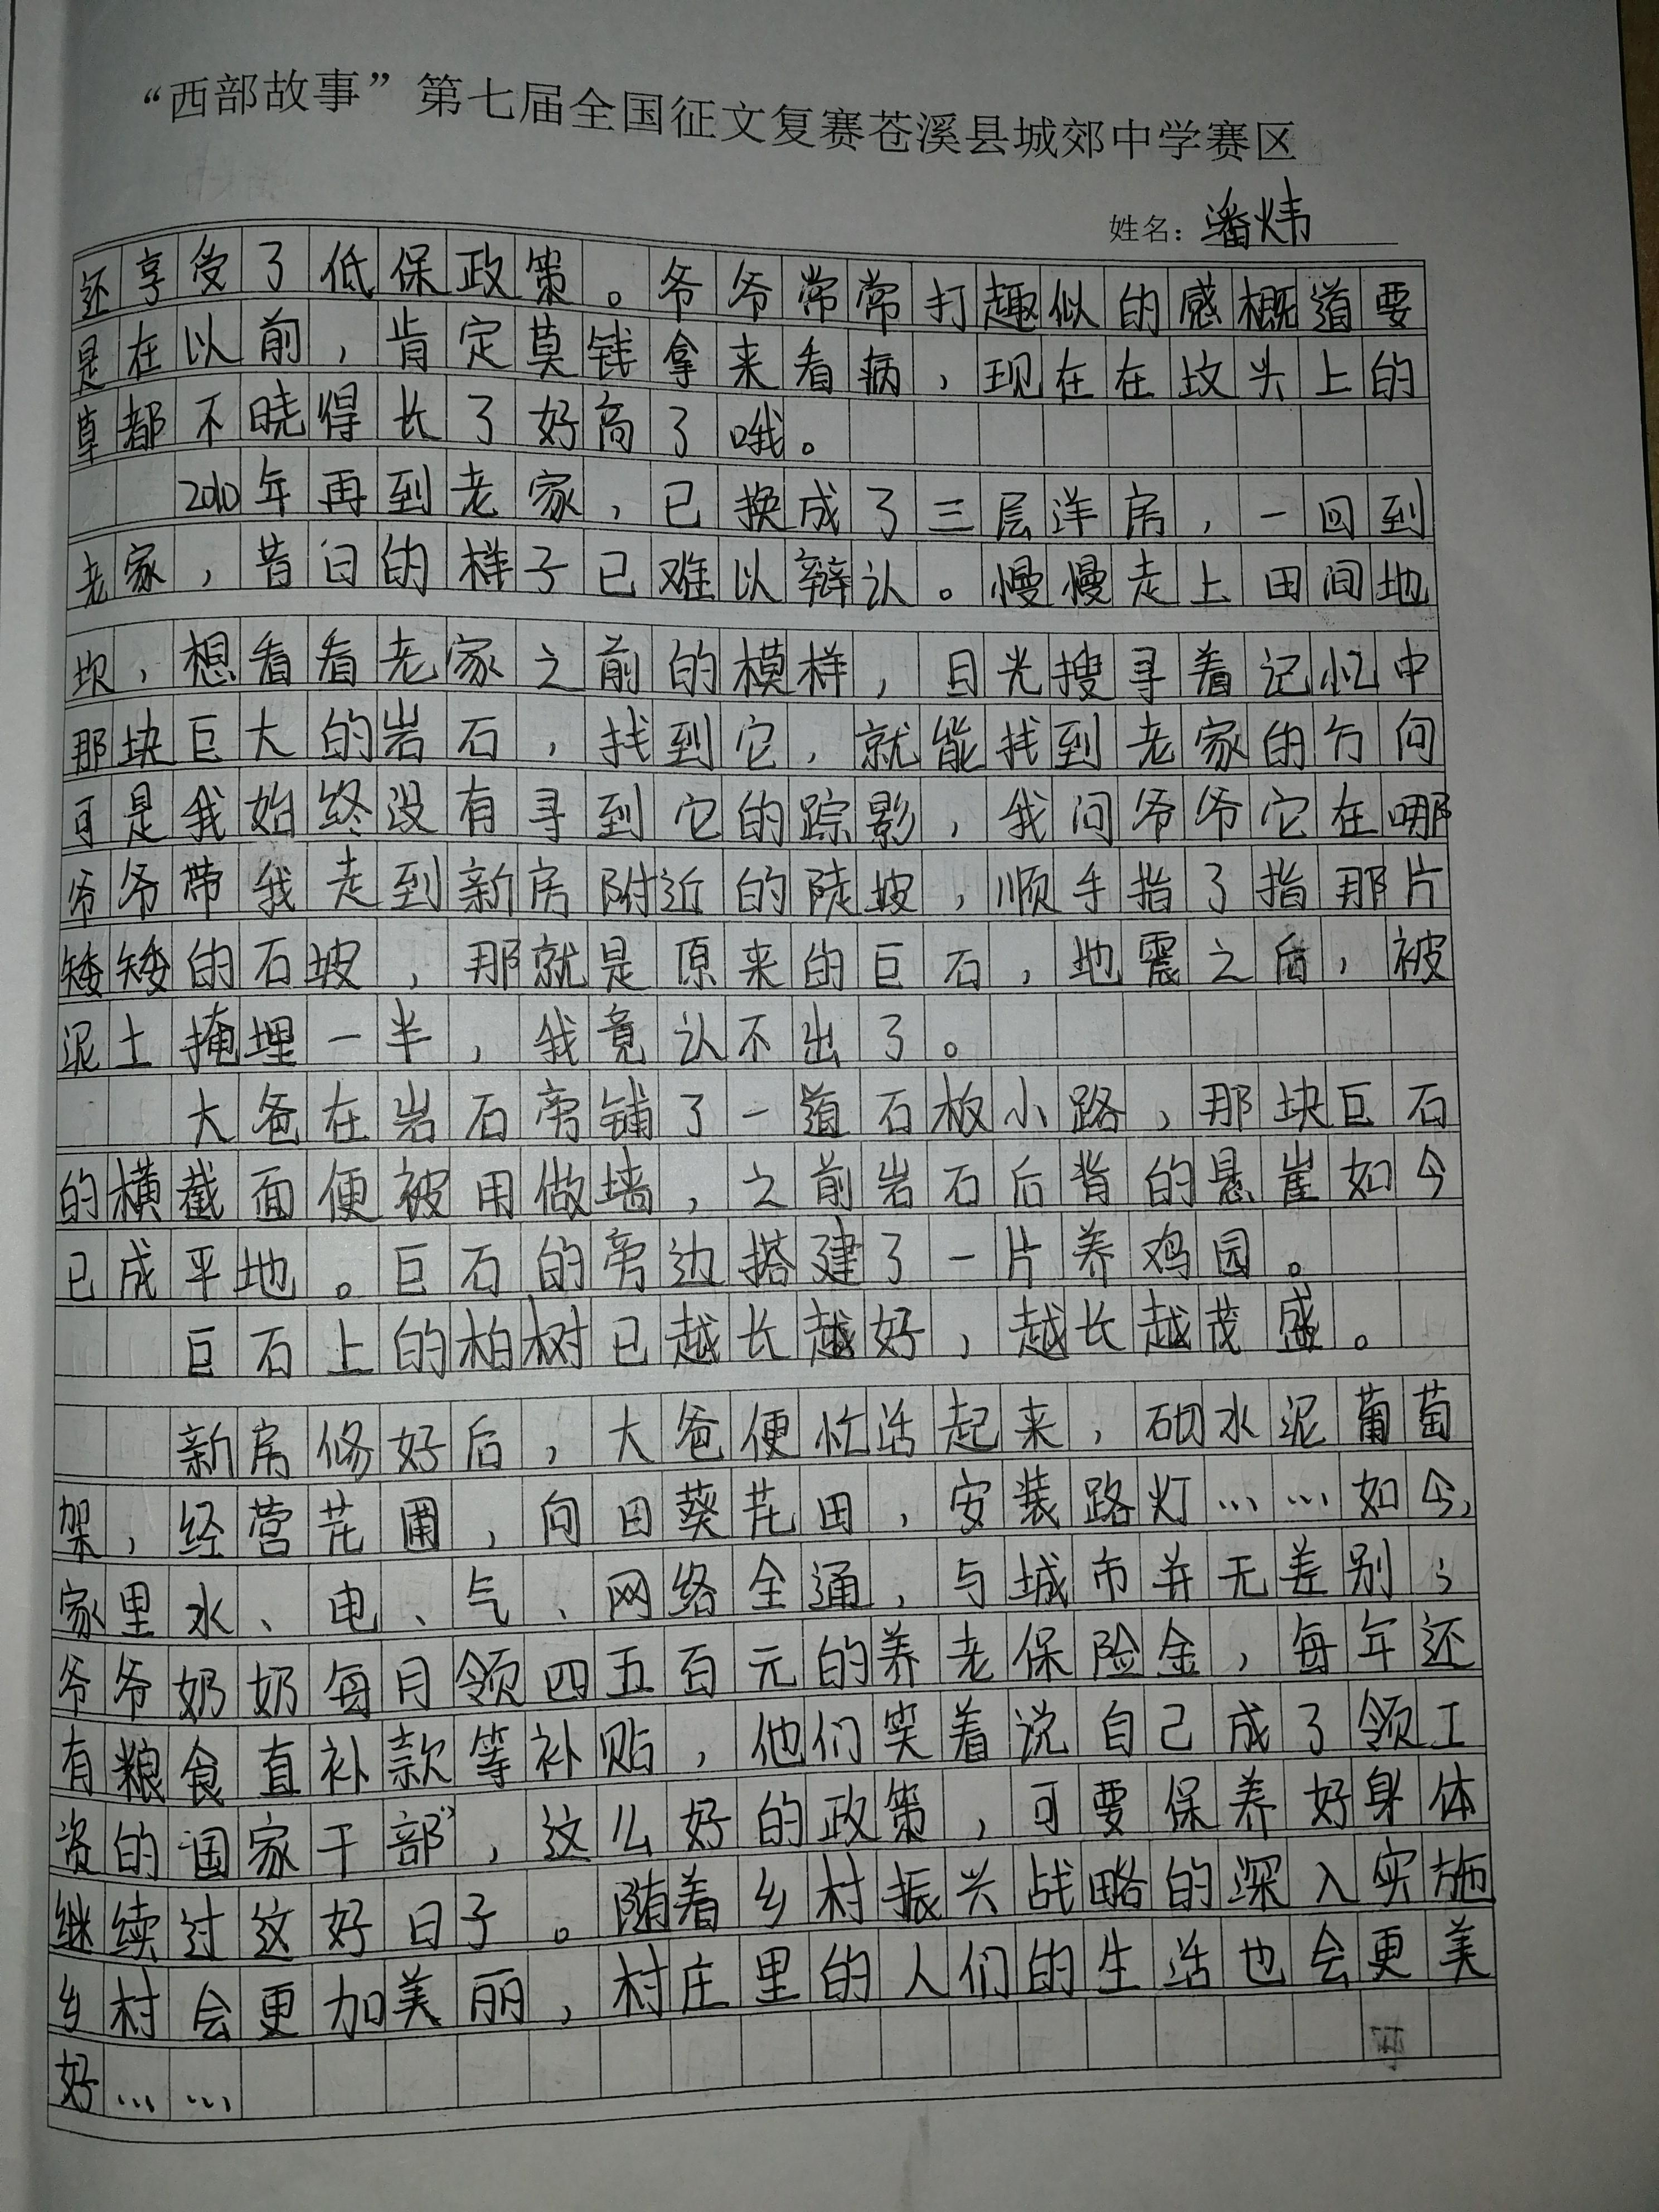 “西部故事”第七届全国征文复赛苍溪县城郊中学赛区
姓名：潘炜
还享受了低保政策。爷爷常常打趣似的感概道要
是在以前，肯定莫钱拿来看病，现在在坟头上的
草都不晓得长了好高了哦。
2010年再到老家，已换成了三层洋房，一回到
老家，昔日的样子已难以辩认。慢慢走上田间地
坎，想看看老家之前的模样，目光搜寻着记忆中
那块巨大的岩石，找到它，就能找到老家的方向
可是我始终没有寻到它的踪影，我问爷爷它在哪
爷爷带我走到新房附近的陡坡，顺手指了指那片
矮矮的石坡，那就是原来的巨石，地震之后，被
泥土掩埋一半，我竟认不出了。
大爸在岩石旁铺了一道石板小路，那块巨石
的横截面便被用做墙，之前岩石后背的悬崖如今
已成平地。巨石的旁边搭建了一片养鸡园。
巨石上的柏树已越长越好，越长越茂盛。
新房修好后，大爸便忙活起来，砌水泥葡萄
架，经营花圃，向日葵花田，安装路灯……如今，
家里水、电、气、网络全通，与城市并无差别；
爷爷奶奶每月领四五百元的养老保险金，每年还
有粮食直补款等补贴，他们笑着说自己成了领工
资的国家干部”，这么好的政策，可要保养好身体
继续过这好日子。随着乡村振兴战略的深入实施
乡村会更加美丽，村庄里的人们的生活也会更美
好……